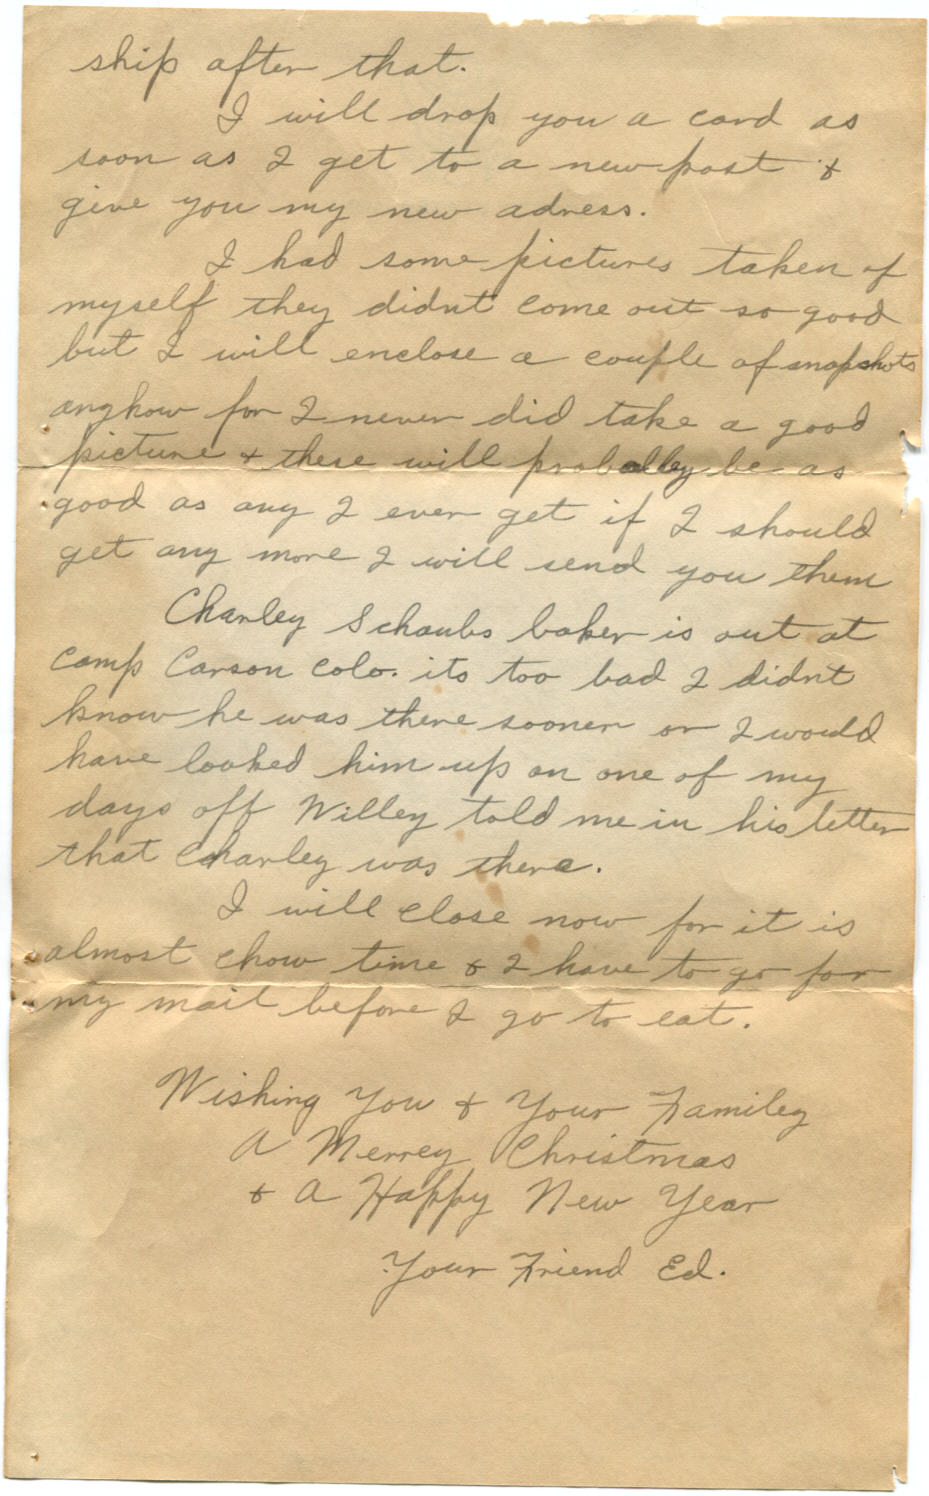 ship after that.
I will drop you a card as
soon as I get to a new post &
give you my new adress.
I had some pictures taken of
myself they didnt come out so good
but I will enclose a couple of snapshots
anyhow for I never did take a good
picture & these will proballey be as
good as any I ever get if I should
get any more I will send you them
Charley Schaubs baker is out at
Camp Carson Colo. its too bad I didnt
know he was there sooner or I would
have looked him up on one of my
days off Willey told me in his letter
that Charley was there.
I will close now for it is
almost chow time & I have to go for
my mail before I go to eat.
Wishing You & Your Familey
A Merrey Christmas
& A Happy New Year
Your Friend Ed.